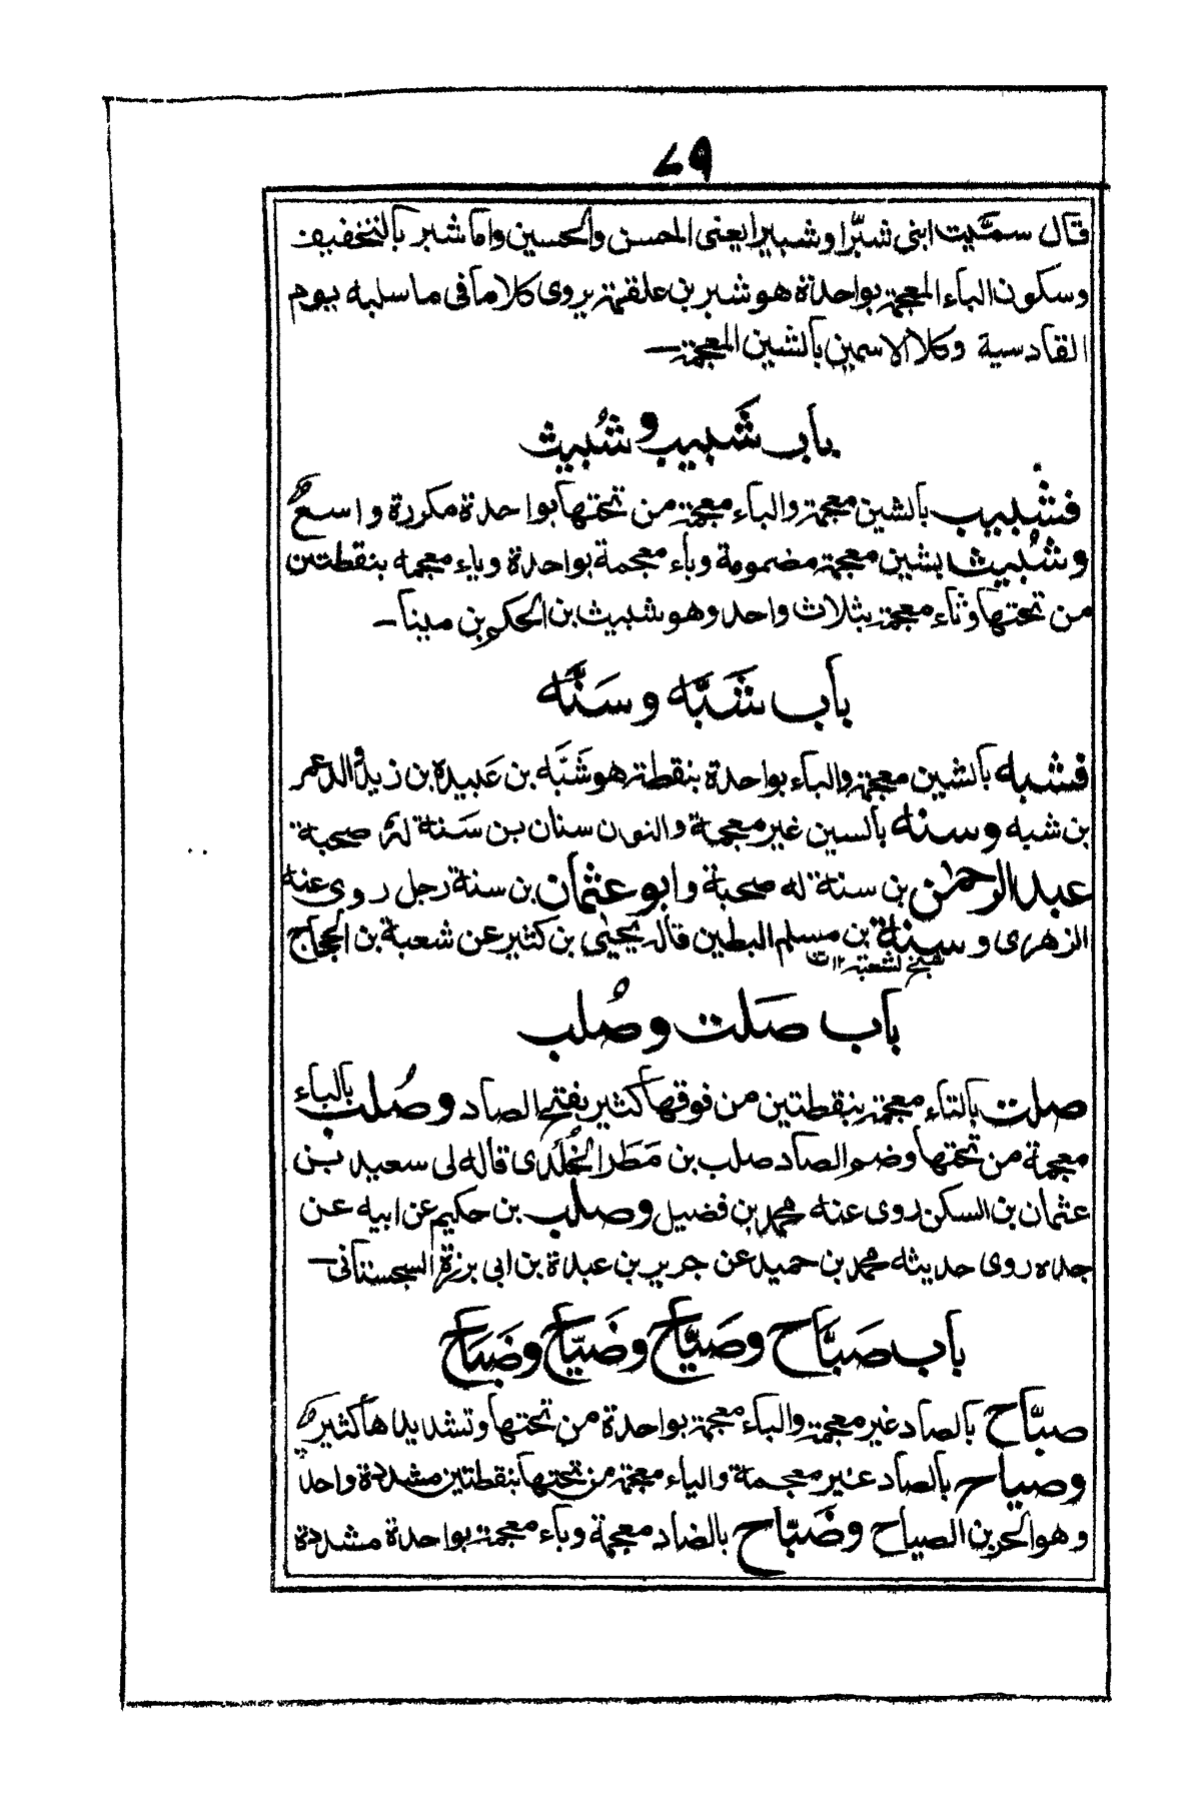 ٧٩
قال سمَّيت ابنى شبّرا وشبيرا يعنى الحسن والحسين واما شبر بالتخفيف
وسكون الباء المعجمة بواحدة هو شبر بن علقمة يروى كلاما فى ما سلبه يوم
القادسية وكلا الاسمين بالشين المعجمة ــ
باب شَبيب و شُبيث
فشبيب بالشين معجمة والباء معجمة من تحتها بواحدة مكررة واسع
وشُبيث بشين معجمة مضمومة وباء معجمة بواحدة وياء معجمه بنقطتين
من تحتها وثاء معجمة بثلاث واحد وهو شبيث بن الحكم بن مينا ــ
باب شَبَّه و سَنَّه
فشبه بالشين معجمة والباء بواحدة بنقطة هو شَبَّه بن عَبيدة بن زيد والد عمر
بن شبه وسنه بالسين غير معجمة والنون سنان بن سَنة له صحبة
عبد الرحمٰن بن سنة له صحبة وابو عثمان بن سنة رجل روى عنه
الزهرى و سنة بن مسلم البطين قاله يحيٰى بن كثير عن شعبة بن الحجاج
شيخ لشعبة ١٢ت
باب صَلت و صُلب
صلت بالتاء معجمة بنقطتين من فوقها كثير بفتح الصاد وصُلب بالباء
معجمة من تحتها وضم الصاد صلب بن مَطَر الخُلدى قاله لى سعيد بن
عثمان بن السكن روى عنه محمد بن فضيل وصلب بن حكيم عن ابيه عن
جده روى حديثه محمد بن حميد عن جرير بن عبدة بن ابى برزة السجستانى ــ
باب صَبَّاح وصَيَّاح وضَيَّاح وضَبَاح
صبّاح بالصاد غير معجمة والباء معجمة بواحدة من تحتها وتشديدها كثير
وصياح بالصاد غير معجمة والياء معجمة من تحتها بنقطتين مشددة واحد
وهو الحر بن الصياح وضَبّاح بالضاد معجمة وباء معجمة بواحدة مشددة